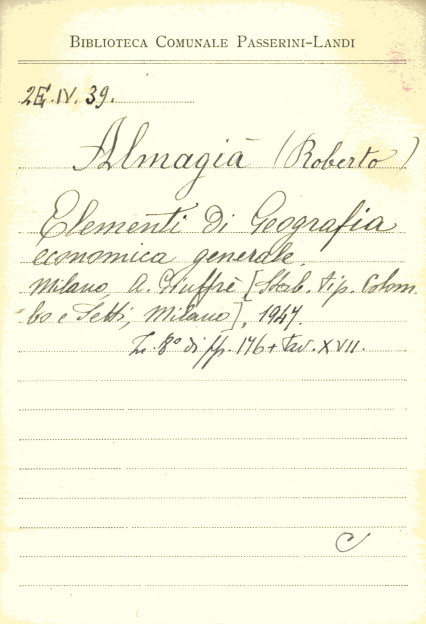 BIBLIOTECA COMUNALE PASSERINI-LANDI
2E.IV.39.
Almagià (Roberto)
Elementi di Geografia
economica generale.
Milano, A. Giuffrè [Stab. tip. Colom-
bo e Tetti, Milano], 1947.
In 8° di pp. 176 + tav. XVII.
C